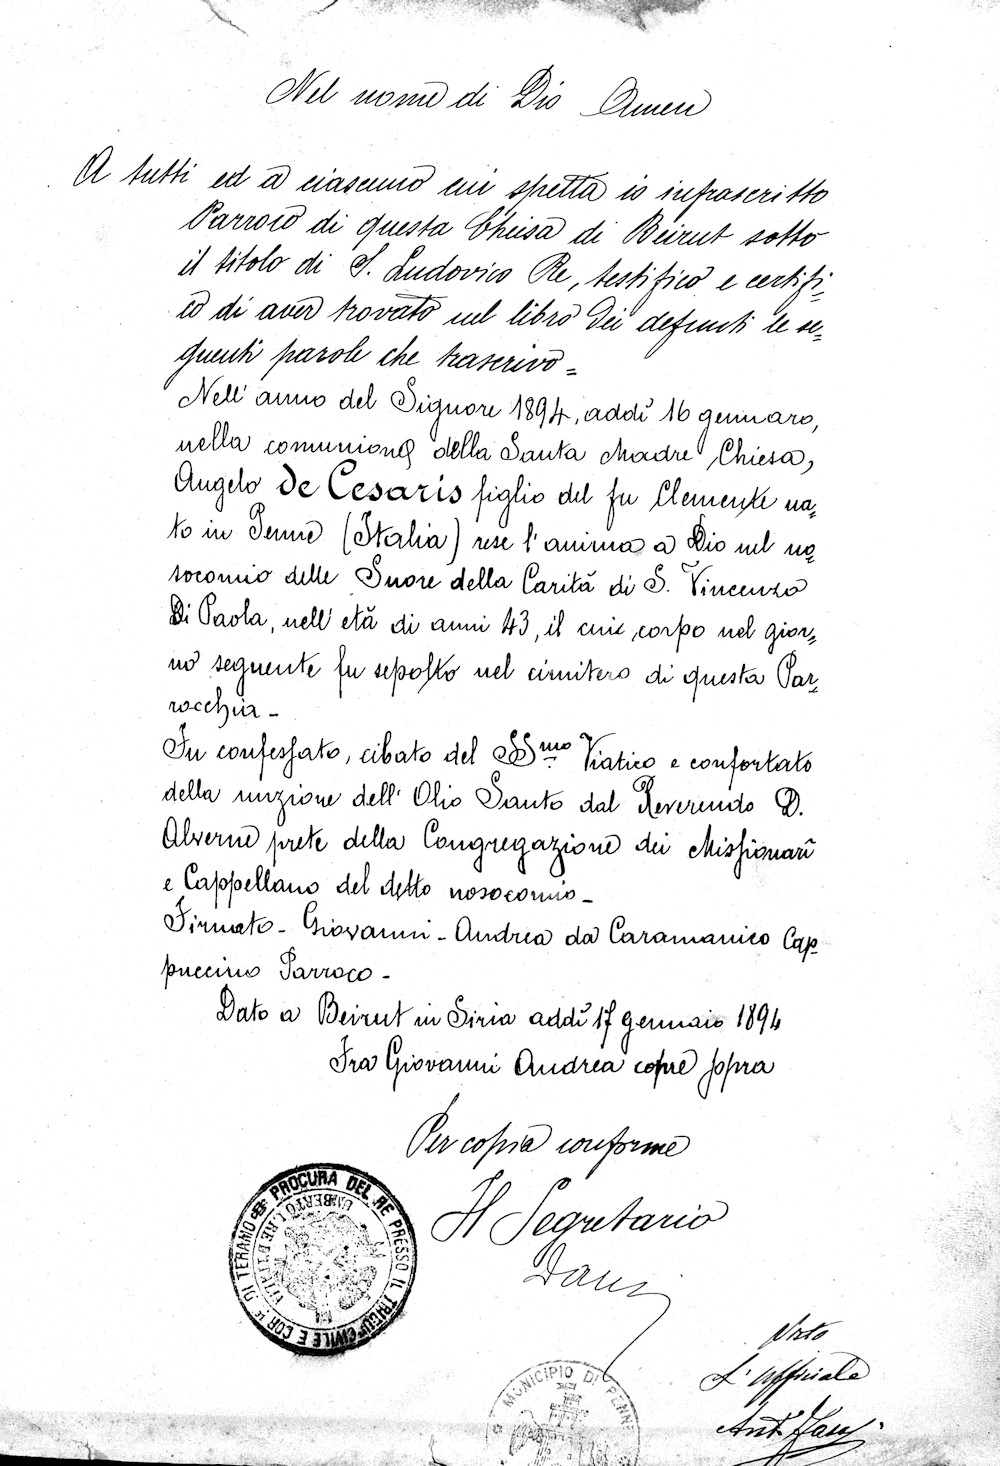 Nel nome di Dio Amen
A tutti ed a ciascuno cui spetta io infrascritto
Parroco di questa Chiesa di Beirut sotto
il titolo di S. Ludovico Re, testifico e certifi=
co di aver trovato nel libro dei defunti le se=
guenti parole che trascrivo =
Nell' anno del Signore 1894, addì 16 gennaro,
nella comunione della Santa Madre Chiesa,
Angelo de Cesaris figlio del fu Clemente na=
to in Penne (Italia) rese l'anima a Dio nel no=
socomio delle Suore della Carità di S. Vincenzo
Di Paola, nell' età di anni 43, il cui corpo nel gior=
no seguente fu sepolto nel cimitero di questa Par=
rocchia -
Fu confessato, cibato del SSmo Viatico e confortato
della unzione dell' Olio Santo dal Reverendo D.
Alverne prete della Congregazione dei Missionari
e Cappellano del detto nosocomio -
Firmato - Giovanni - Andrea da Caramanico Cap=
puccino Parroco -
Dato a Beirut in Siria addì 17 gennaio 1894
Fra Giovanni Andrea come sopra
Per copia conforme
Il Segretario
PROCURA DEL RE PRESSO IL TRIBU CIVILE E COR. LE DI TERAMO
UMBERTO I RE D'ITALIA
Visto
L' Uffiziale
Ant.
MUNICIPIO DI PENNE